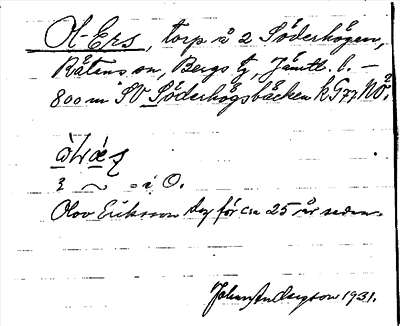 Ol-Ers, torp i 2 Söderhögen,
Rätans sn, Bergs tg, Jämtl. l. —
800 m SV Söderhögsbäcken
= i O.
Olov Eriksson dog för ca 25 år sedan.
Johan Anderson 1931.